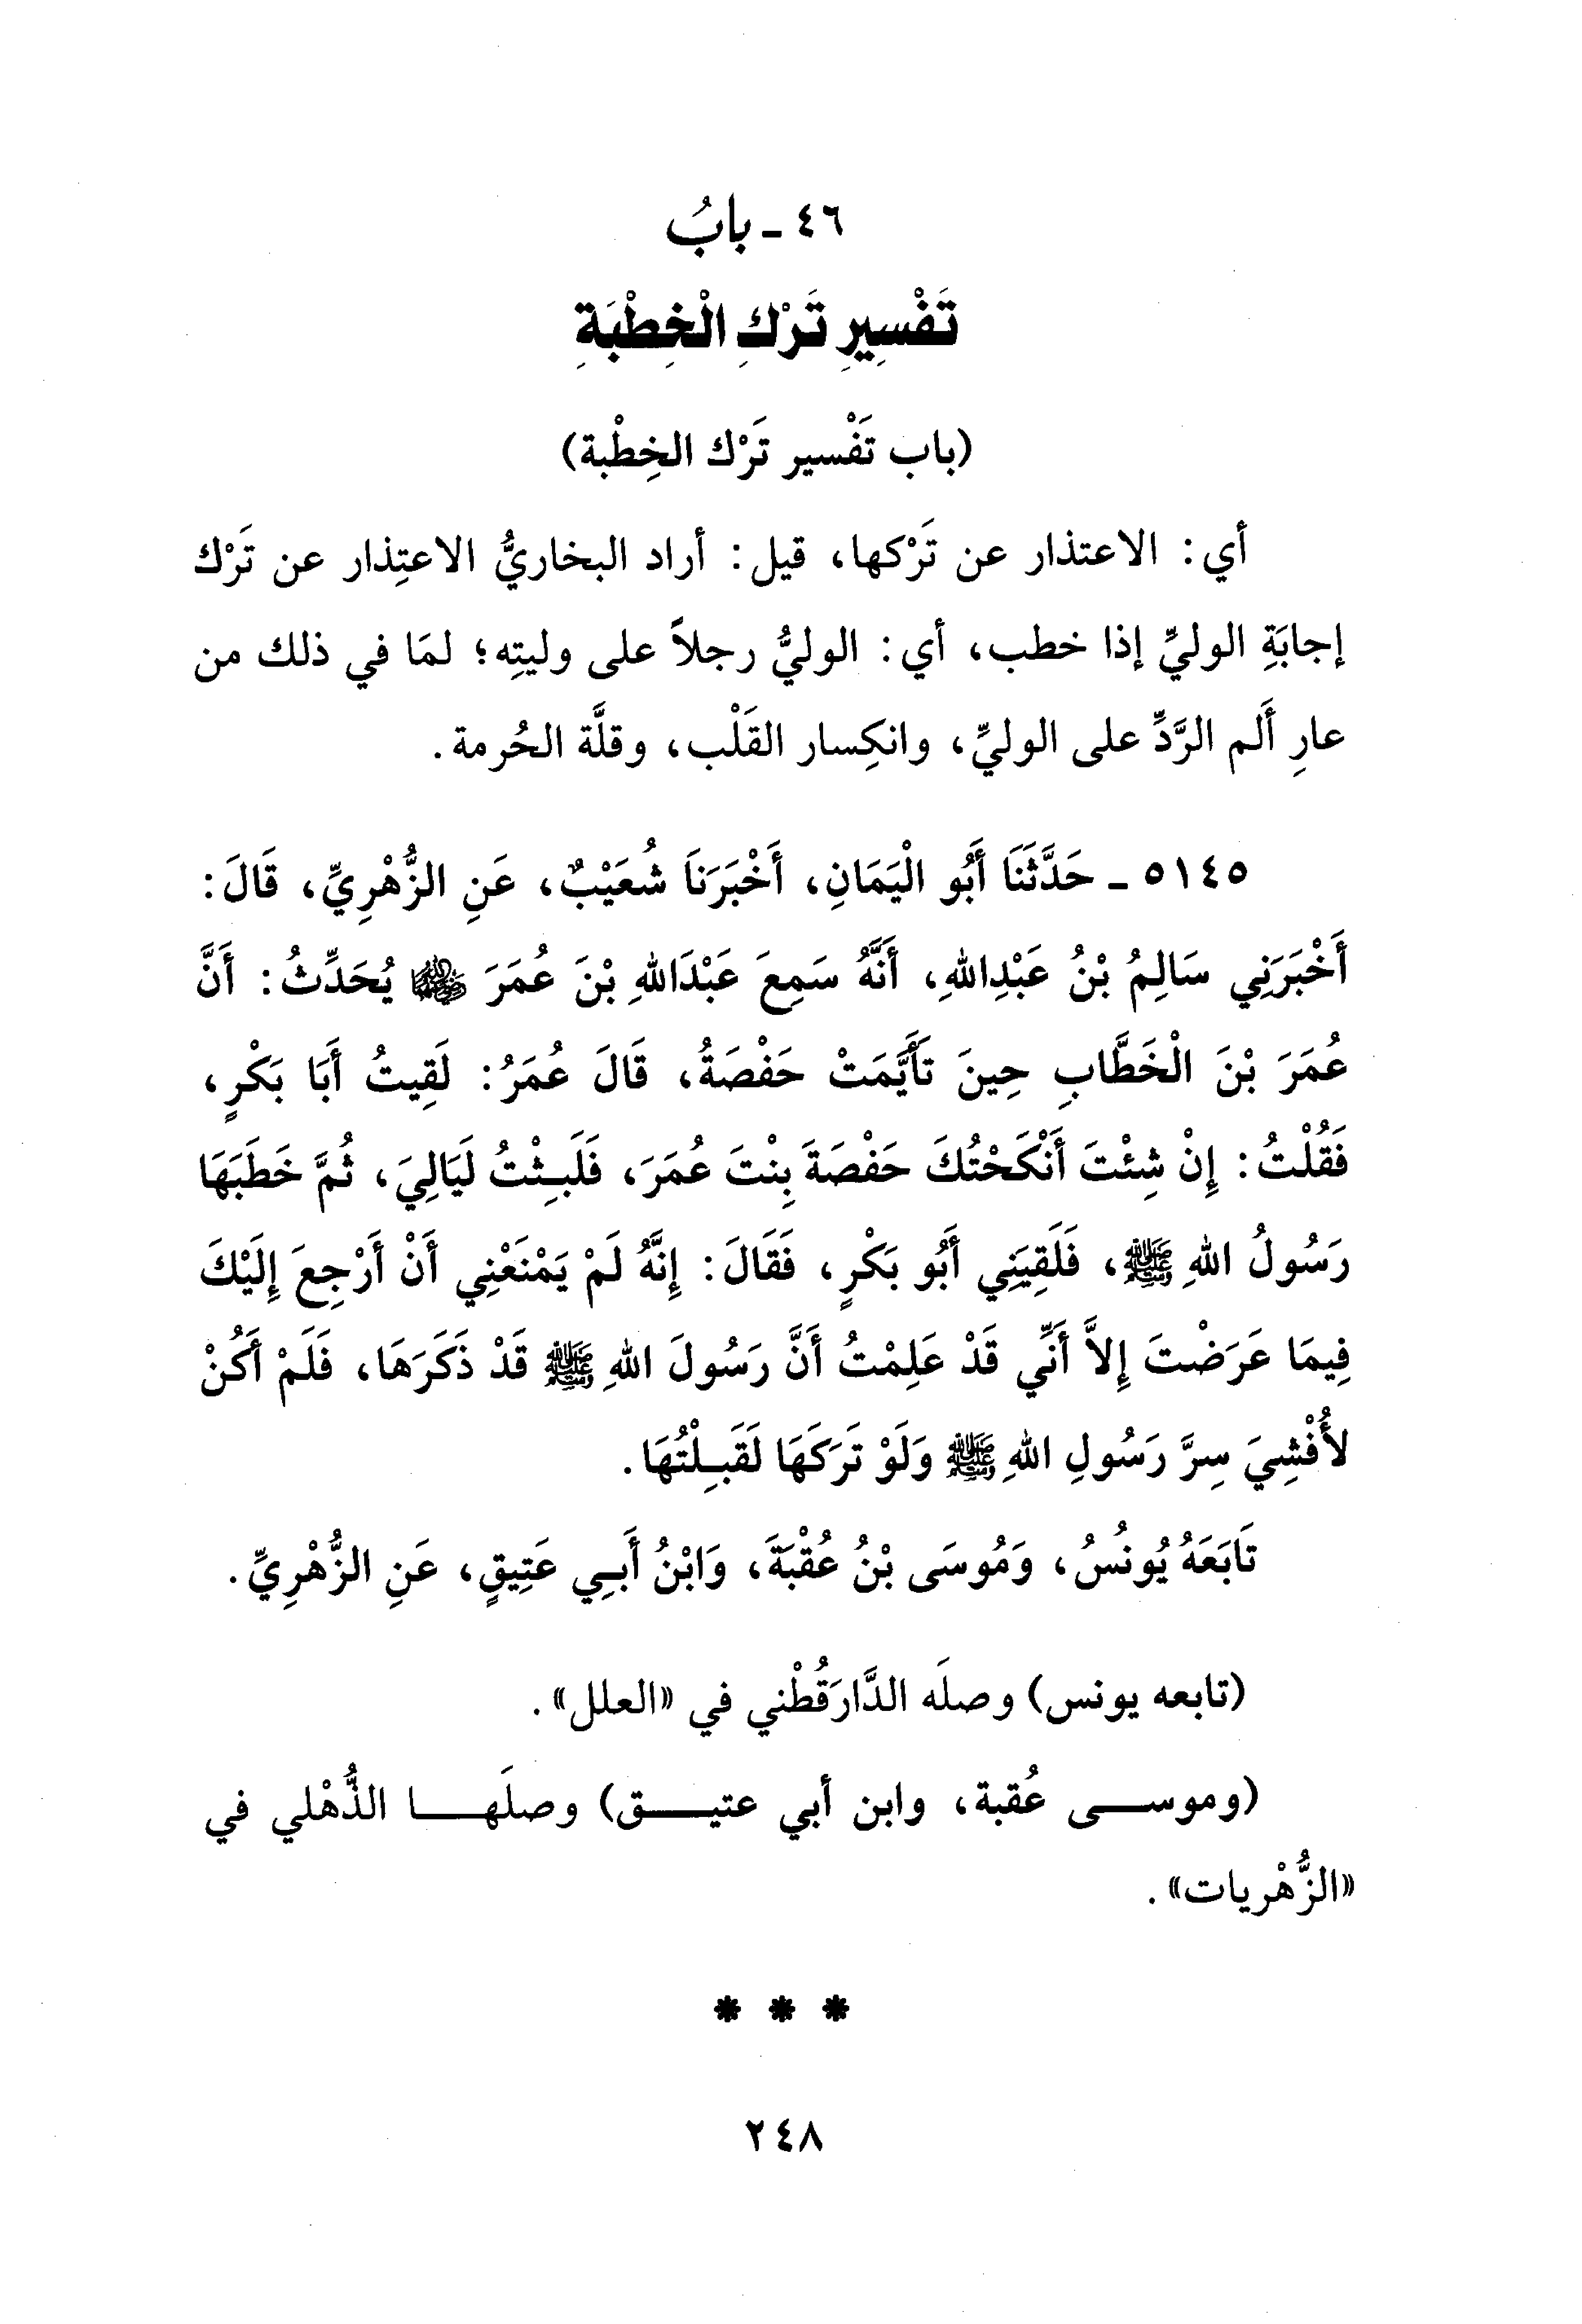 ٤٦ - بابُ
تَفْسِيرِ تَرْكِ الْخِطْبَةِ
(باب تَفْسير تَرْك الخِطْبة)
أي: الاعتذار عن تَرْكها، قيل: أراد البخاريُّ الاعتِذار عن تَرْك
إجابَةِ الوليِّ إذا خطب، أي: الوليُّ رجلاً على وليتِه؛ لمَا في ذلك من
عارِ أَلم الرَّدِّ على الوليِّ، وانكِسار القَلْب، وقلَّة الحُرمة.
٥١٤٥ - حَدَّثَنَا أَبُو الْيَمَانِ، أَخْبَرَنَا شُعَيْبٌ، عَنِ الزُّهْرِيِّ، قَالَ:
أَخْبَرَنِي سَالِمُ بْنُ عَبْدِاللهِ، أَنَّهُ سَمِعَ عَبْدَاللهِ بْنَ عُمَرَ ﵄ يُحَدِّثُ: أَنَّ
عُمَرَ بْنَ الْخَطَّابِ حِينَ تَأَيَّمَتْ حَفْصَةُ، قَالَ عُمَرُ: لَقِيتُ أَبَا بَكْرٍ،
فَقُلْتُ: إِنْ شِئْتَ أَنْكَحْتُكَ حَفْصَةَ بِنْتَ عُمَرَ، فَلَبِثْتُ لَيَالِيَ، ثُمَّ خَطَبَهَا
رَسُولُ اللهِ ﷺ، فَلَقِيَنِي أَبُو بَكْرٍ، فَقَالَ: إِنَّهُ لَمْ يَمْنَعْنِي أَنْ أَرْجِعَ إِلَيْكَ
فِيمَا عَرَضْتَ إِلاَّ أَنِّي قَدْ عَلِمْتُ أَنَّ رَسُولَ اللهِ ﷺ قَدْ ذَكَرَهَا، فَلَمْ أَكُنْ
لأُفْشِيَ سِرَّ رَسُولِ اللهِ ﷺ وَلَوْ تَرَكَهَا لَقَبِلْتُهَا.
تَابَعَهُ يُونُسُ، وَمُوسَى بْنُ عُقْبَةَ، وَابْنُ أَبِي عَتِيقٍ، عَنِ الزُّهْرِيِّ.
(تابعه يونس) وصلَه الدَّارَقُطْني في «العلل».
(وموسى عُقبة، وابن أبي عتيق) وصلَها الذُّهْلي في
«الزُّهْريات».
* * *
٢٤٨